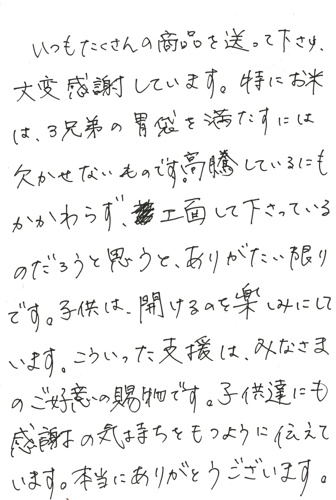 いつもたくさんの商品を送って下さり、
大変感謝しています。特にお米
は、3兄弟の胃袋を満たすには
欠かせないものです。高騰しているにも
かかわらず、工面して下さっている
のだろうと思うと、ありがたい限り
です。子供は、開けるのを楽しみにして
います。こういった支援は、みなさま
のご好意の賜物です。子供達にも
感謝の気持ちをもつように伝えて
います。本当にありがとうございます。